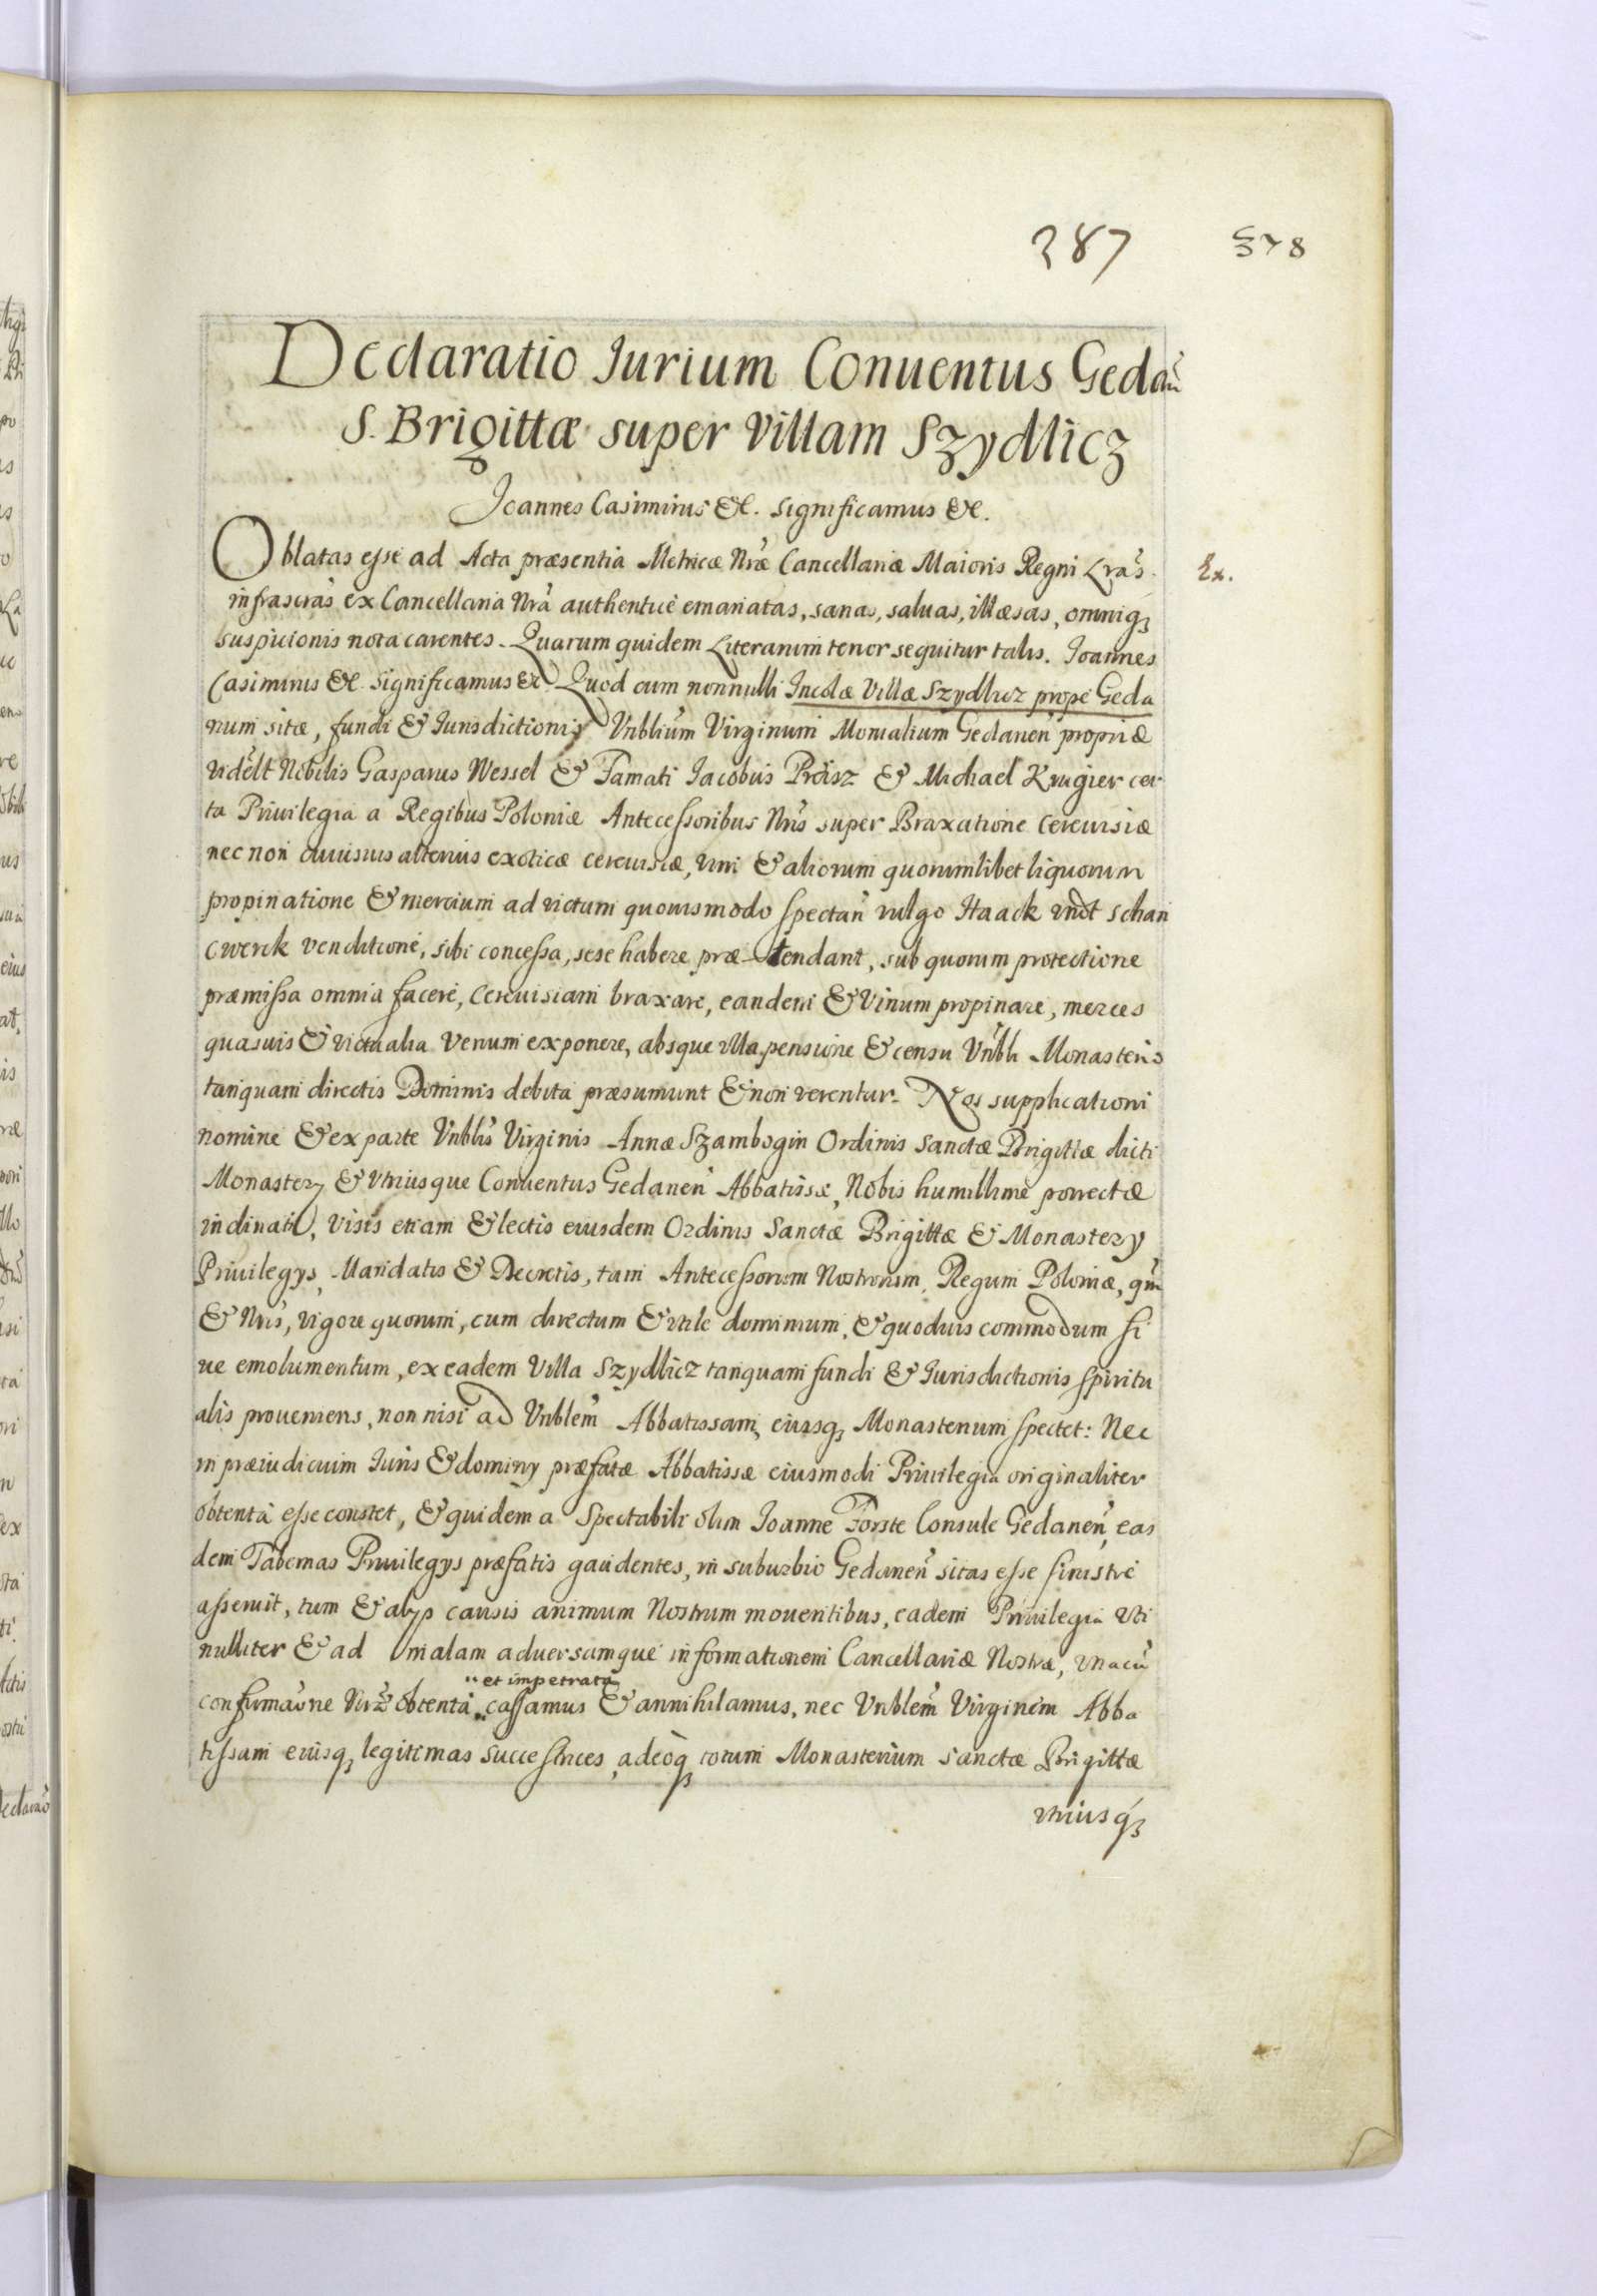 287 378
Declaratio Jurium Conuentus Gedan̄
S. Brigittæ super Villam Szydlicz
Joannes Casimirus &c. significamus &c.
Oblatas esse ad Acta præsentia Metricæ Nr̃æ Cancellariæ Maioris Regni Lrãs
Ex.
infrascrãs ex Cancellaria Nrã authenticè emanatas, sanas, saluas, illæsas, omniq3
suspicionis nota carentes. Quarum quidem Literarum tenor sequitur talis. Joannes
Casimirus &c. significamus &c. Quod cum nonnulli Incolæ Villæ Szydlicz propè Geda
num sitæ, fundi & Iurisdictionis Vnblium̃ Virginum Monialium Gedanen̄ propriæ
vidẽlt Nobilis Gasparus Wessel & Famati Jacobus Preisz & Michael Krugier cer
ta Priuilegia a Regibus Poloniæ Antecessoribus Nr̃is super Braxatione cereuisiæ
nec non cuiusuis alterius exoticæ cereuisiæ, vini & aliorum quorumlibet liquorum
propinatione & mercium ad victum quouismodo spectan̄ vulgo Haack vndt schan
cwerk venditione, sibi concessa, sese habere præ-tendant, sub quorum protectione
præmissa omnia facere, Cereuisiam braxare, eandem & Vinum propinare, merces
quasuis & victualia venum exponere, absque vlla pensione & censu Vñbli Monasterio
tanquam directis Dominis debita præsumunt & non verentur. Nos supplicationi
nomine & ex parte Vnblis̃ Virginis Annæ Szambogin Ordinis Sanctæ Brigittæ dicti
Monastery & vtriusque Conuentus Gedanen̄ Abbatissæ, Nobis humillimè porrectæ
inclinati, visis etiam & lectis eiusdem Ordinis Sanctæ Brigittæ & Monastery
Priuilegys, Mandatis & Decretis, tam Antecessorum Nostrorum, Regum Poloniæ, qm̃
& Nr̃is, vigore quorum, cum directum & vtile dominium, & quoduis commodum si
ue emolumentum, ex eadem Villa Szydlicz tanquam fundi & Jurisdictionis spiritu
alis proueniens, non nisi ad Vnblem̃ Abbatissam, eiusq3 Monasterium spectet: Nec
in præiudicium Iuris & dominy præfatæ Abbatissæ eiusmodi Priuilegia originaliter
obtenta esse constet, & quidem a Spectabili olim Joanne Forste Consule Gedanen̄, eas
dem Tabernas Priuilegys præfatis gaudentes, in suburbio Gedanen̄ sitas esse sinistrè
asseruit, tum & alys causis animum Nostrum mouentibus, eadem Priuilegia vti
nulliter & ad malam aduersamque informationem Cancellariæ Nostræ, vnacũ
et impetrata
confirmaõne obtenta cassamus & annihilamus, nec Vnblem̃ Virginem Abba
tissam eiusq3 legitimas successrices, adeoq3 totum Monasterium Sanctæ Brigittæ
vtriusq3